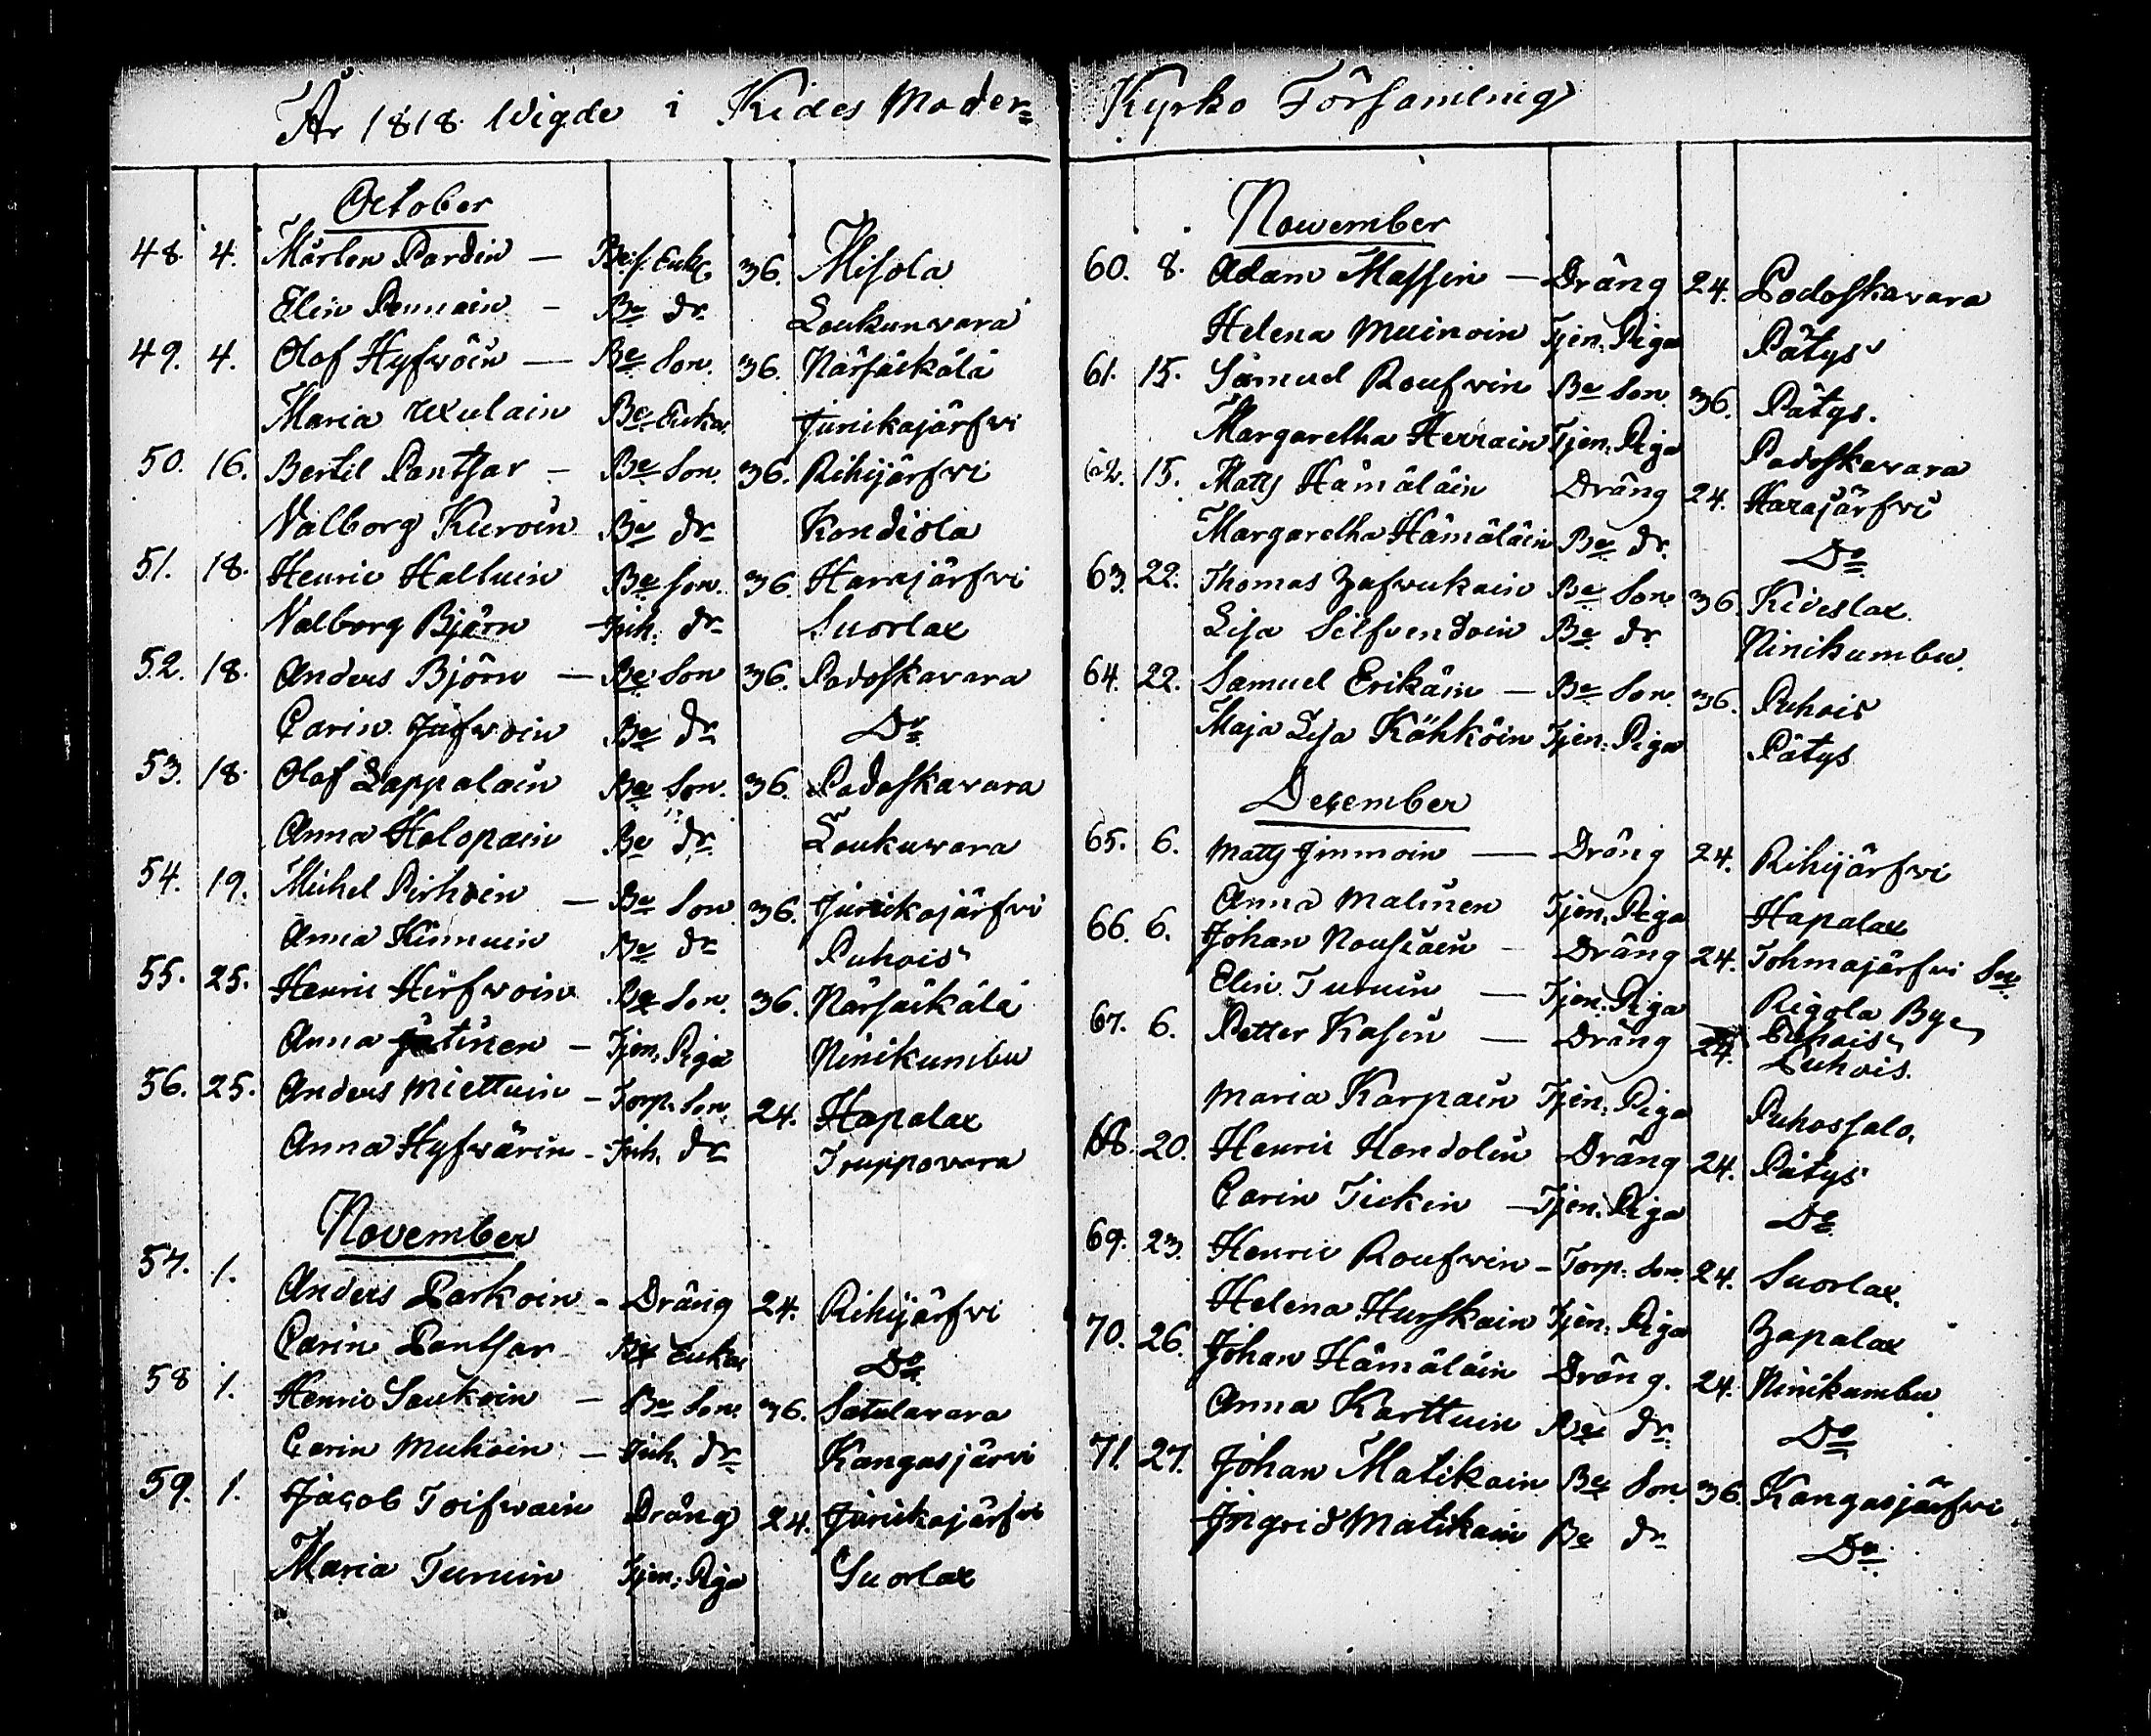 År 1818 Wigde i Kides Moder= Kyrko Församling
October
48. 4. Mårten Pardin — Be: f. Enkl. 36. Misola
Elin Pennain - Be dr. Loukunvara
49. 4. Olof Hyfwöin — Be Son. 36. Närsäkälä
Maria Uxulain Be Enka Juurikajärfwi
50. 16. Bertil Pantsar — Be Son. 36. Rihijärfvi
Valborg Kuroin Be dr Kondiola
51. 18. Henric Halluin Be Son. 36. Harajärfvi
Valborg Björn Inh. dr Suorlax
52. 18. Anders Björn — Be Son 36. Podoskavara
Carin Jufwoin Be dr Do
53. 18. Olof Lappalain Be Son. 36. Podoskavara
Anna Holopain Be dr. Loukuvara
54. 19. Michel Pirhoin — Be Son 36. Juurikajärfvi
Anna Kinnuin Be dr Puhois
55. 25. Henric Hirfwoin Be Son. 36. Närsäkälä
Anna — Tjen. Piga Ninikumbu
56. 25. Anders Miettuin — Torp. Son. 24. Hapalax
Anna Hyfwärin - Inh. dr Truppovara
November
57. 1. Anders Parkoin - Dräng 24. Rihijärfvi
Carin Pantsar Be Enka Do
58 1. Henric Saukoin — Be Son. 36. Satulavara
Carin Muhoin — Inh. dr Kangasjärvi
59. 1. Jacob Toifwain Dräng 24. Juurikajärfvi
Maria Turuin Tjen. Piga Suorlax
Nowember
60. 8. Adam Massin — Dräng 24. Podoskavara
Helena Muinoin Tjen. Piga Pätys
61. 15. Samuel Roufvin Be Son. 36. Pätys.
Margaretha Herrain Tjen. Piga Podoskavara
62. 15. Matts Hämäläin Dräng 24. Harajärfvi
Margaretha Hämäläin Be dr. Do
63. 22. Thomas Zafwukain Be Son. 36. Kiveslax.
Lisa Silfvendoin Be dr. Ninikumbu.
64. 22. Samuel Erikäin — Be Son. 36. Puhois
Maja Lisa Kähköin Tjen. Piga Pätys
December
65. 6. Matts Immoin — Dräng 24. Rihijärfvi
Anna Malinen Tjen. Piga Hapalax
66. 6. Johan Nousiain — Dräng 24. Tohmajärfvi Sn
Elin Turuin — Tjen. Piga Rigola By
67. 6. Petter Kosoin — Dräng 24. Puhois
Puhois.
Maria Karpain Tjen. Piga Puhossalo.
68. 20. Henric Hendolin Dräng 24. Pätys
Carin Tickin — Tjen. Piga Do
69. 23. Henric Roufvin — Torp. Son. 24. Suorlax.
Helena Hurskain Tjen. Piga Zapalax
70. 26. Johan Hämäläin Dräng. 24. Ninikumbu
Anna Karttuin Be dr. Do
71. 27. Johan Matikain Be Son. 36. Kangasjärfvi
Ingrid Matikain Be dr Do